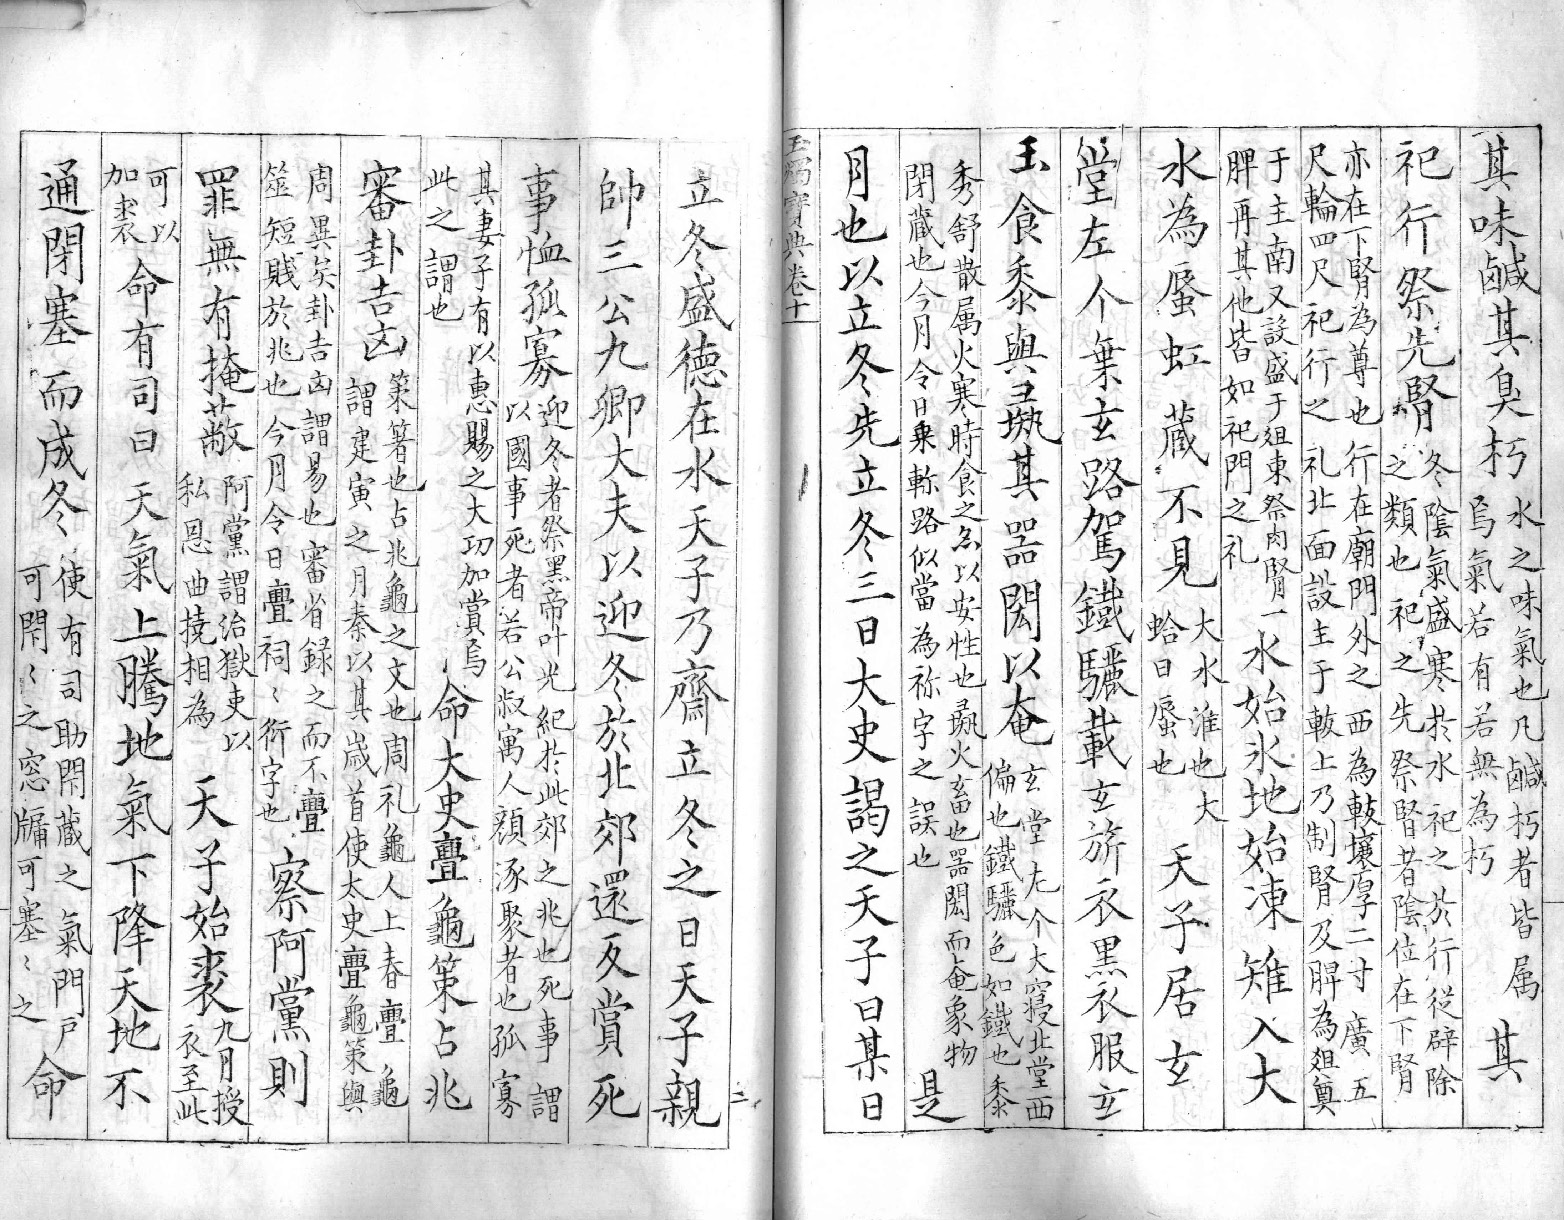 其味鹹其臭朽水之味氣也凡鹹朽者皆属焉氣若有若無為朽其
祀行祭先腎冬陰氣盛寒於水祀之於行従辟除之類也祀之先祭腎者陰位在下腎
亦在下腎為尊也行在廟門外之西為軷壤厚二寸廣五尺輪四尺祀行之礼北面設主于軷上乃制腎及脾為俎奠
于主南又設盛于俎東祭肉腎一脾再其他皆如祀門之礼水始氷地始凍雉入大
水為蜃虹蔵不見大水淮也大蛤曰蜃也天子居玄
堂左个乗玄路駕鐵驪載玄旂衣黒衣服玄
玉食黍與彘其器閎以奄玄堂左个大寝北堂西偏也鐵驪色如鐵也黍
秀舒散属火寒時食之亦以安性也彘火畜也器閎而奄象物閉蔵也今月令曰乗軫路似當為袗字之誤也是
月也以立冬先立冬三日大史謁之天子曰某日
玉燭寶典卷十一
二
立冬盛德在水天子乃齋立冬之日天子親
帥三公九卿大夫以迎冬於北郊還反賞死
事恤孤寡迎冬者祭黒帝叶光紀於北郊之兆也死事謂以國事死者若公叔寓人顔涿聚者也孤寡
其妻子有以惠賜之大功加賞焉此之謂也命大史舋龜策占兆
審卦吉凶策蓍也占兆龜之文也周礼龜人上春舋龜謂建寅之月秦以其歳首使太史舋龜策與
周異矣卦吉凶謂易也審省録之而不舋筮短賤於兆也今月令曰舋祠々衍字也察阿黨則
罪無有掩蔽阿黨謂治獄吏以私恩曲撓相為天子始裘九月授衣至此
可以加裘命有司曰天氣上騰地氣下降天地不
通閉塞而成冬使有司助閇蔵之氣門戸可閇々之窓牖可塞々之命